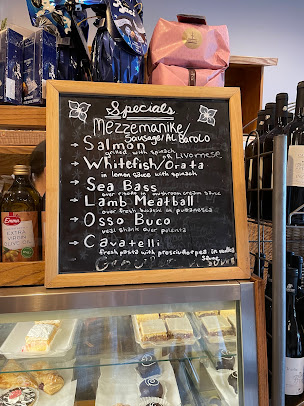 Specials
Mezzemanike
Sausage/Al Barolo
Salmon
grilled with spinach or Livornese
Whitefish/Orata
in lemon sauce with spinach
Sea Bass
over risotto in mushroom cream sauce
Lamb Meatball
over fresh bucatini in puttanesca
Osso Buco
veal shank over polenta
Cavatelli
fresh pasta with prosciutto + pea in vodka
sauce
EXTRA
VIRGIN